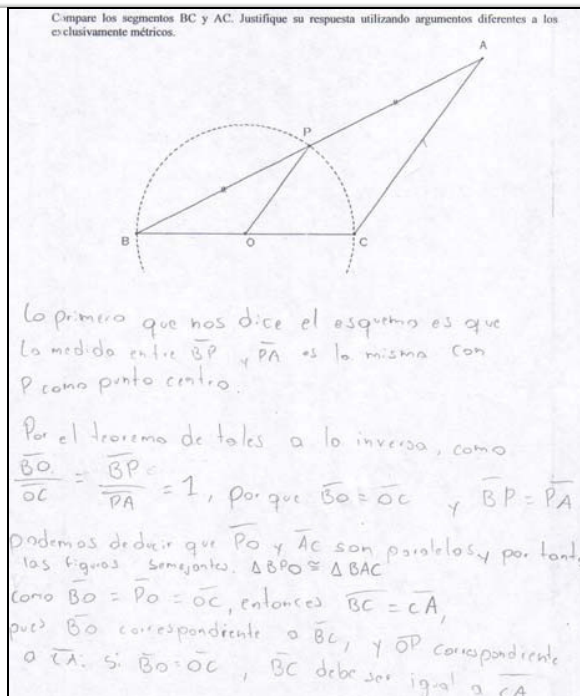 Compare los segmentos BC y AC. Justifique su respuesta utilizando argumentos diferentes a los
exclusivamente métricos.
A
P
B
O
C
Lo primero que nos dice el esquema es que
La medida entre BP y PA es la misma con
P como punto centro.
Por el teorema de tales a la inversa, como
BO/OC = BP/PA = 1, porque BO = OC y BP = PA
podemos deducir que PO y AC son paralelos y por tant
las figuras semejantes. ΔBPO ≅ ΔBAC
Como BO = PO = OC, entonces BC = CA,
pues BO correspondiente a BC, y OP correspondiente
a CA: si BO = OC, BC debe ser igual a CA